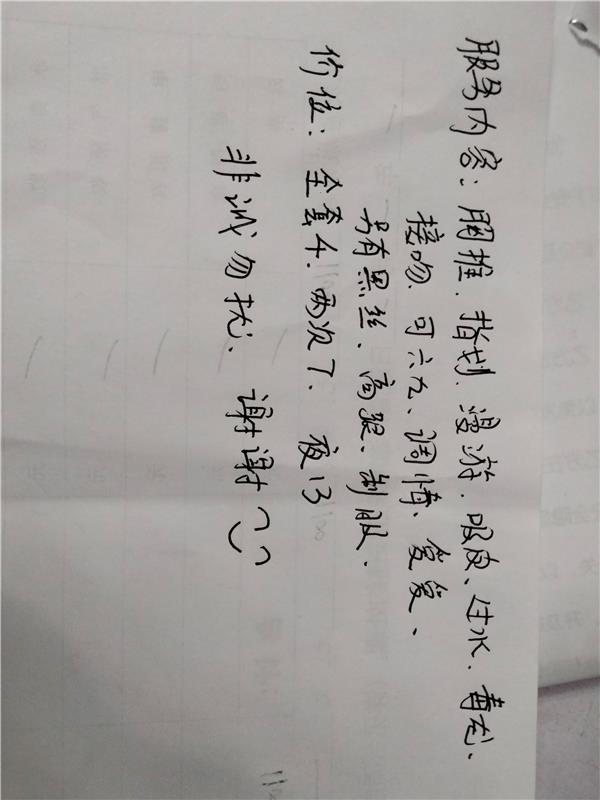 服务内容：胸推、指划、漫游、吸皮、过水、毒龙、
接吻、可六九、调情、复复、
另有黑丝、高跟、制服、
价位：全套4、两次7、夜13
非诚勿扰、谢谢